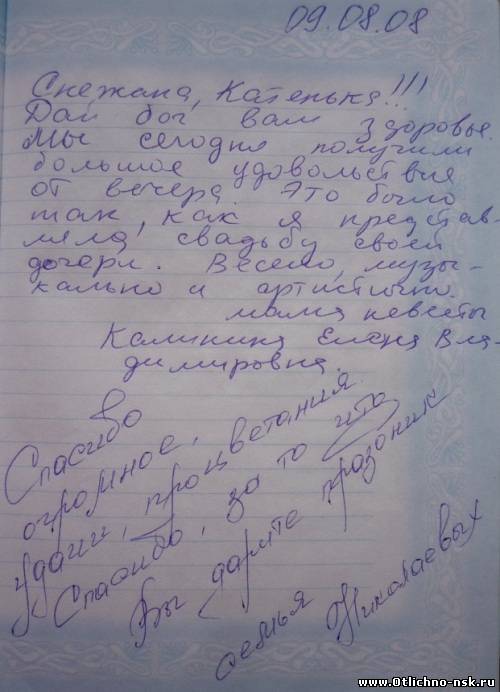 09.08.08
Снежана, Катенька!!!
Дай бог вам здоровье.
Мы сегодня получили
большое удовольствия
от вечера. Это было
так, как я представ-
ляла свадьбу своей
дочери. Весело, музы-
кально и артистично.
мама невесты
Калинина Елена Вла-
димировна.
Спасибо
огромное,
удачи, процветания
Спасибо, за то что
Вы дарите праздник
семья Николаевых
www.Otlichno-nsk.ru